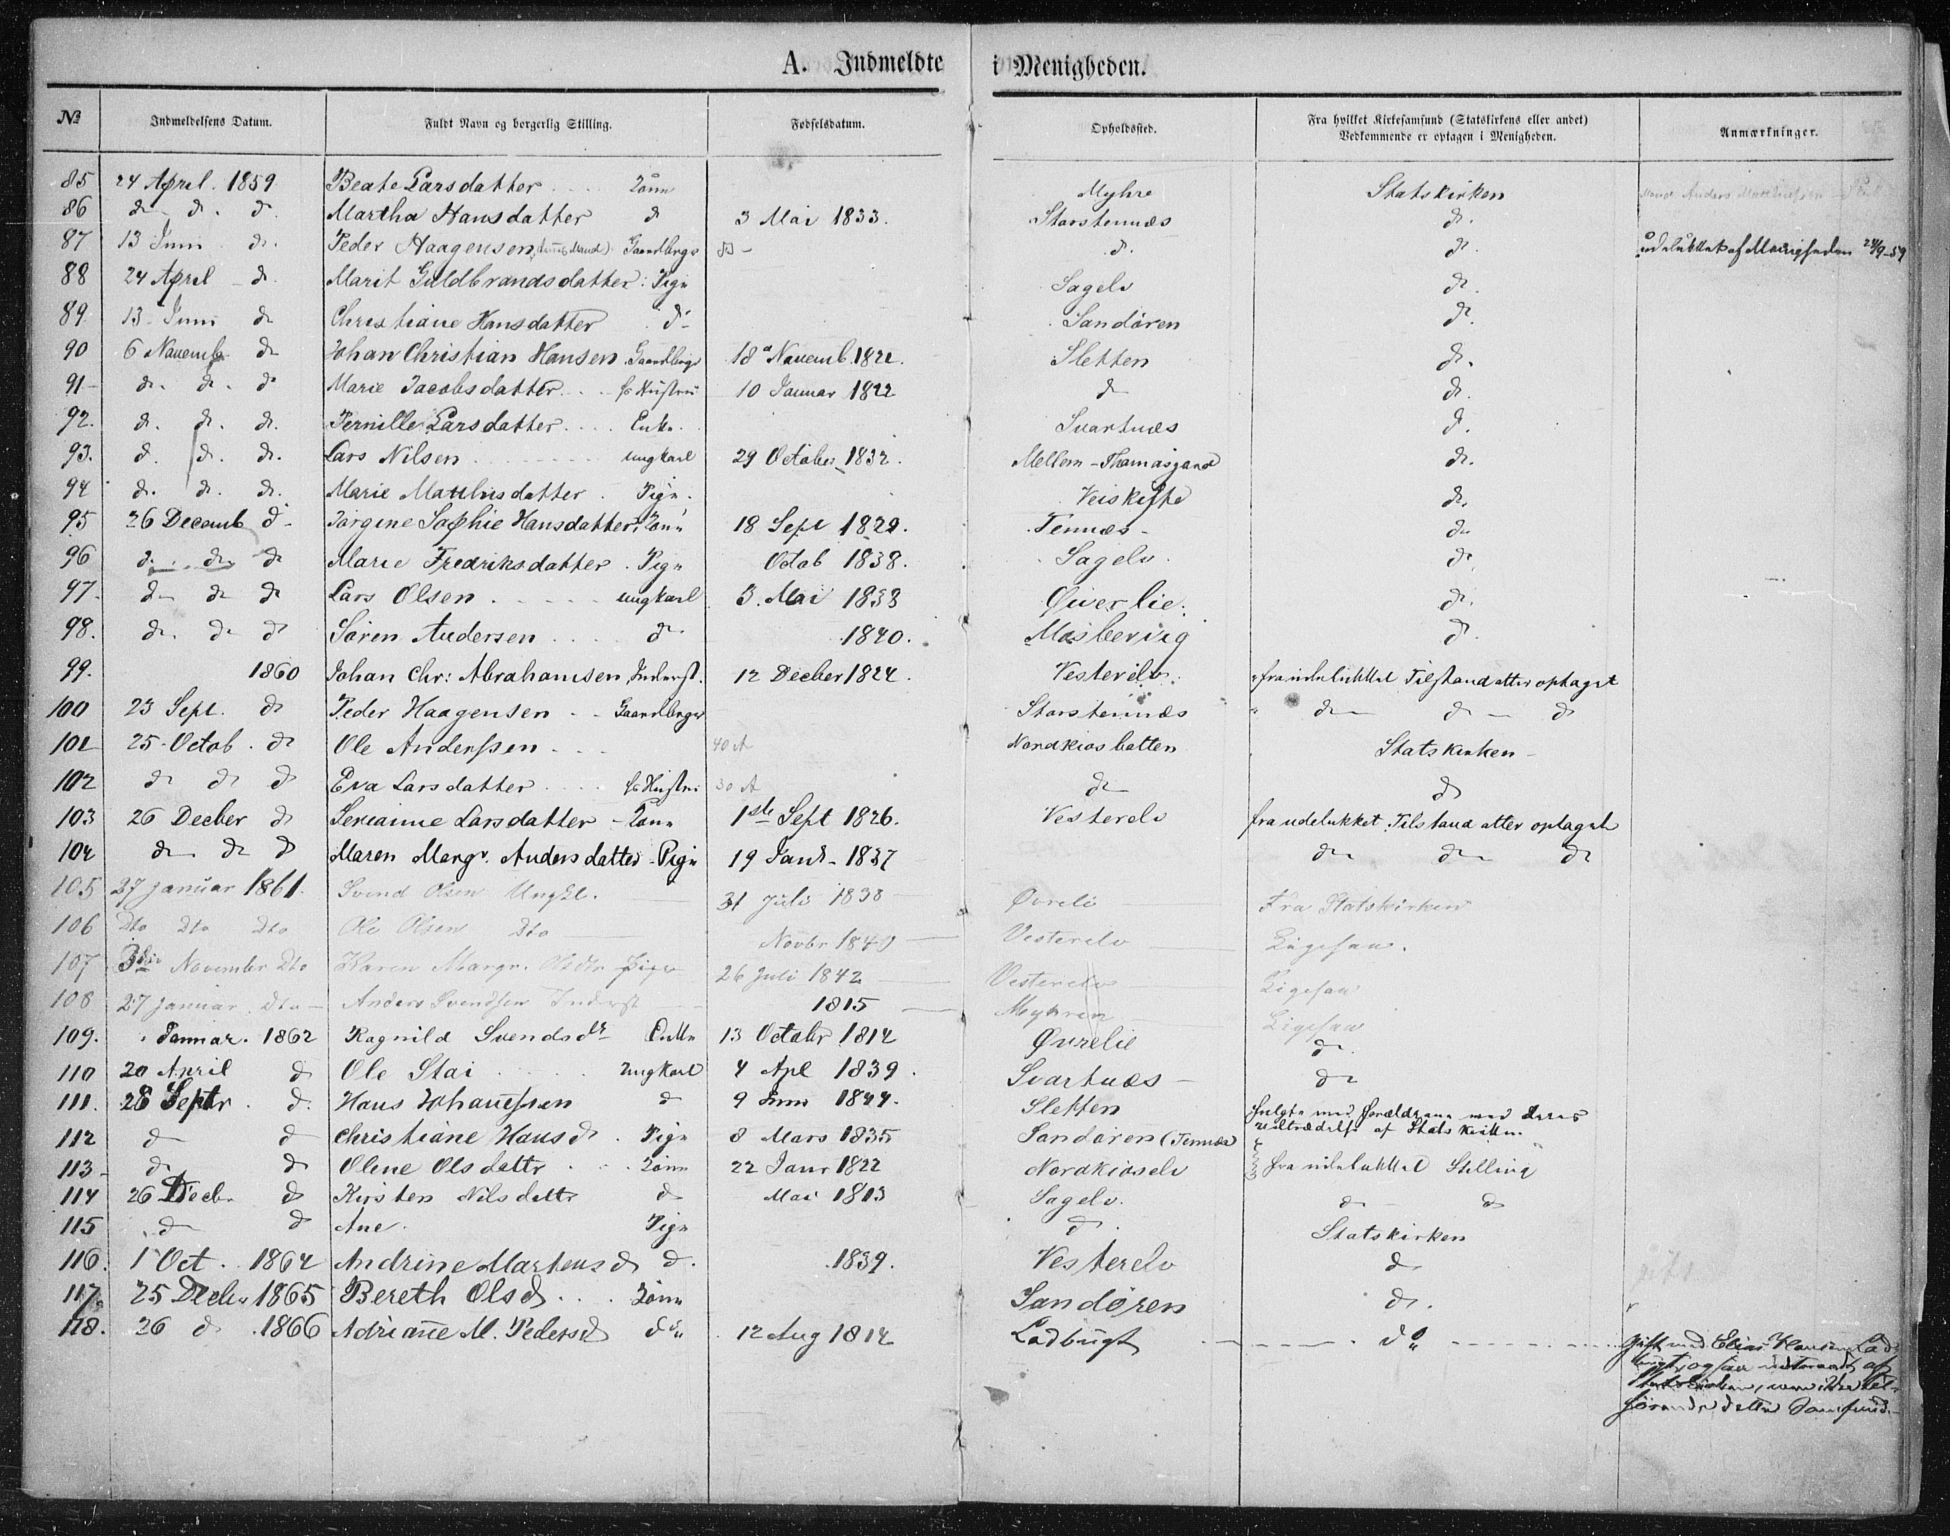 A. Indmeldte i Menigheden.
№ Indmeldelsens Datum. Fuldt Navn og borgerlig Stilling. Fødselsdatum. Opholdssted. Fra hvilket Kirkesamfund (Statskirkens eller andet) Vedkommende er optagen i Menigheden. Anmærkninger.
85 24 April. 1859 Beate Larsdatter Konn Myhre Statskirken
86 d. d. d. Martha Hansdatter d 3 Mai 1833. Storstennæs d.
87 13 Juni d. Peder Haagensen Gaardbrgr d. d. udelukket af Menigheden 24/9-59
88 24 April d. Marit Guldbrandsdatter: Pign Sagelv d.
89 13 Juni d Christiane Hansdatter d Sandøren d.
90 6 Novemb d Johan Christian Hansen Gaardbrgr 18 Novemb. 1822. Sletten d.
91 d. d. d Marie Jacobsdatter Hustru 10 Januar 1822 d d.
92. d. d. d. Pernille Larsdatter Enke. Svartnæs d.
93. d. d. d. Lars Nilsen ungkarl 29 October 1832. Mellem-Thomasgard d.
94 d. d. d. Marie Mathisdatter. Pign. Veiskifte d.
95 26 Decemb d Jørgine Sophie Hansdatter, Konn 18 Sept 1829. Tennæs d
96 d. d. d Marie Fredriksdatter. Pign Octob 1838. Sagelv. d.
97 d d d Lars Olsen ungkarl 3. Mai 1838 Øiverlie. d.
98. d. d d Søren Andersen d 1840. Mosbering d.
99. 1860 Johan Chr: Abrahamsen Inderst. 12 Decber 1824. Vesterelv. fra udelukket Tilstand atter optaget
100 23 Sept. d Peder Haagensen Gaardbrger Storstennæs d d d
101 25 Octob. d Ole Anderssen 40 A Nordkiosbotten Statskirken
102 d d d Eva Larsdatter Hustru 30 A d d
103 26 Decber d Serianne Larsdatter Konn 1ste Sept 1826. Vesterelv fra udelukket Tilstand atter optaget
104 d d d Maren Margr. Andersdatter Pign 19 Janr 1837 d d d
105 27 Januar 1861. Svend Olsen Ungkl. 31 Juli 1838 Øvreli Fra Statskirken
106 Dto Dto Dto Ole Olsen Dto Novbr 1840 Vesterelv Ligesaa.
107 3die November Dto Karen Margr. Olsdtr Pige 26 Juli 1842 Vesterelv Ligesaa
108 27 Januar Dto Anders Svendsen Inderst 1815 Myhren Ligesaa
109. Januar. 1862 Ragnild Svendsdr Enke 13 Octobr 1814 Øvrelie d.
110 20 April d Ole Stai ungkarl 4 Apl 1839. Svartnæs d
111. 28 Septr. d. Hans Johanessen d 9 Juni 1844. Sletten fulgte med Forældrene med deres udtrædelse af Statskirken
112 d d Christiane Hansd. Pign 8 Mars 1835 Sandøren (Tennæs)
113 d d Olene Olsdattr Konn 22 Janr 1822 Nordkioselv fra udelukket Stilling
114 26 Decbr d Kirsten Nilsdattr d Mai 1813 Sagelv. d d
115 d d Ane. Pign d. Statskirken
116. 1 Oct. 1864 Andrine Martensd d. 1839. Vesterelv d
117 25 Decbr 1865 Bereth Olsd. Konn Sandøren d.
118. 26 d. 1866 Adriane M. Pedersd do 12 Aug 1814 Ladbugt do gift med Elias Hansen Lad-
bugt, og saa udtraadt af
Statskirken, uden ikke til-
hørende dette Samfund.